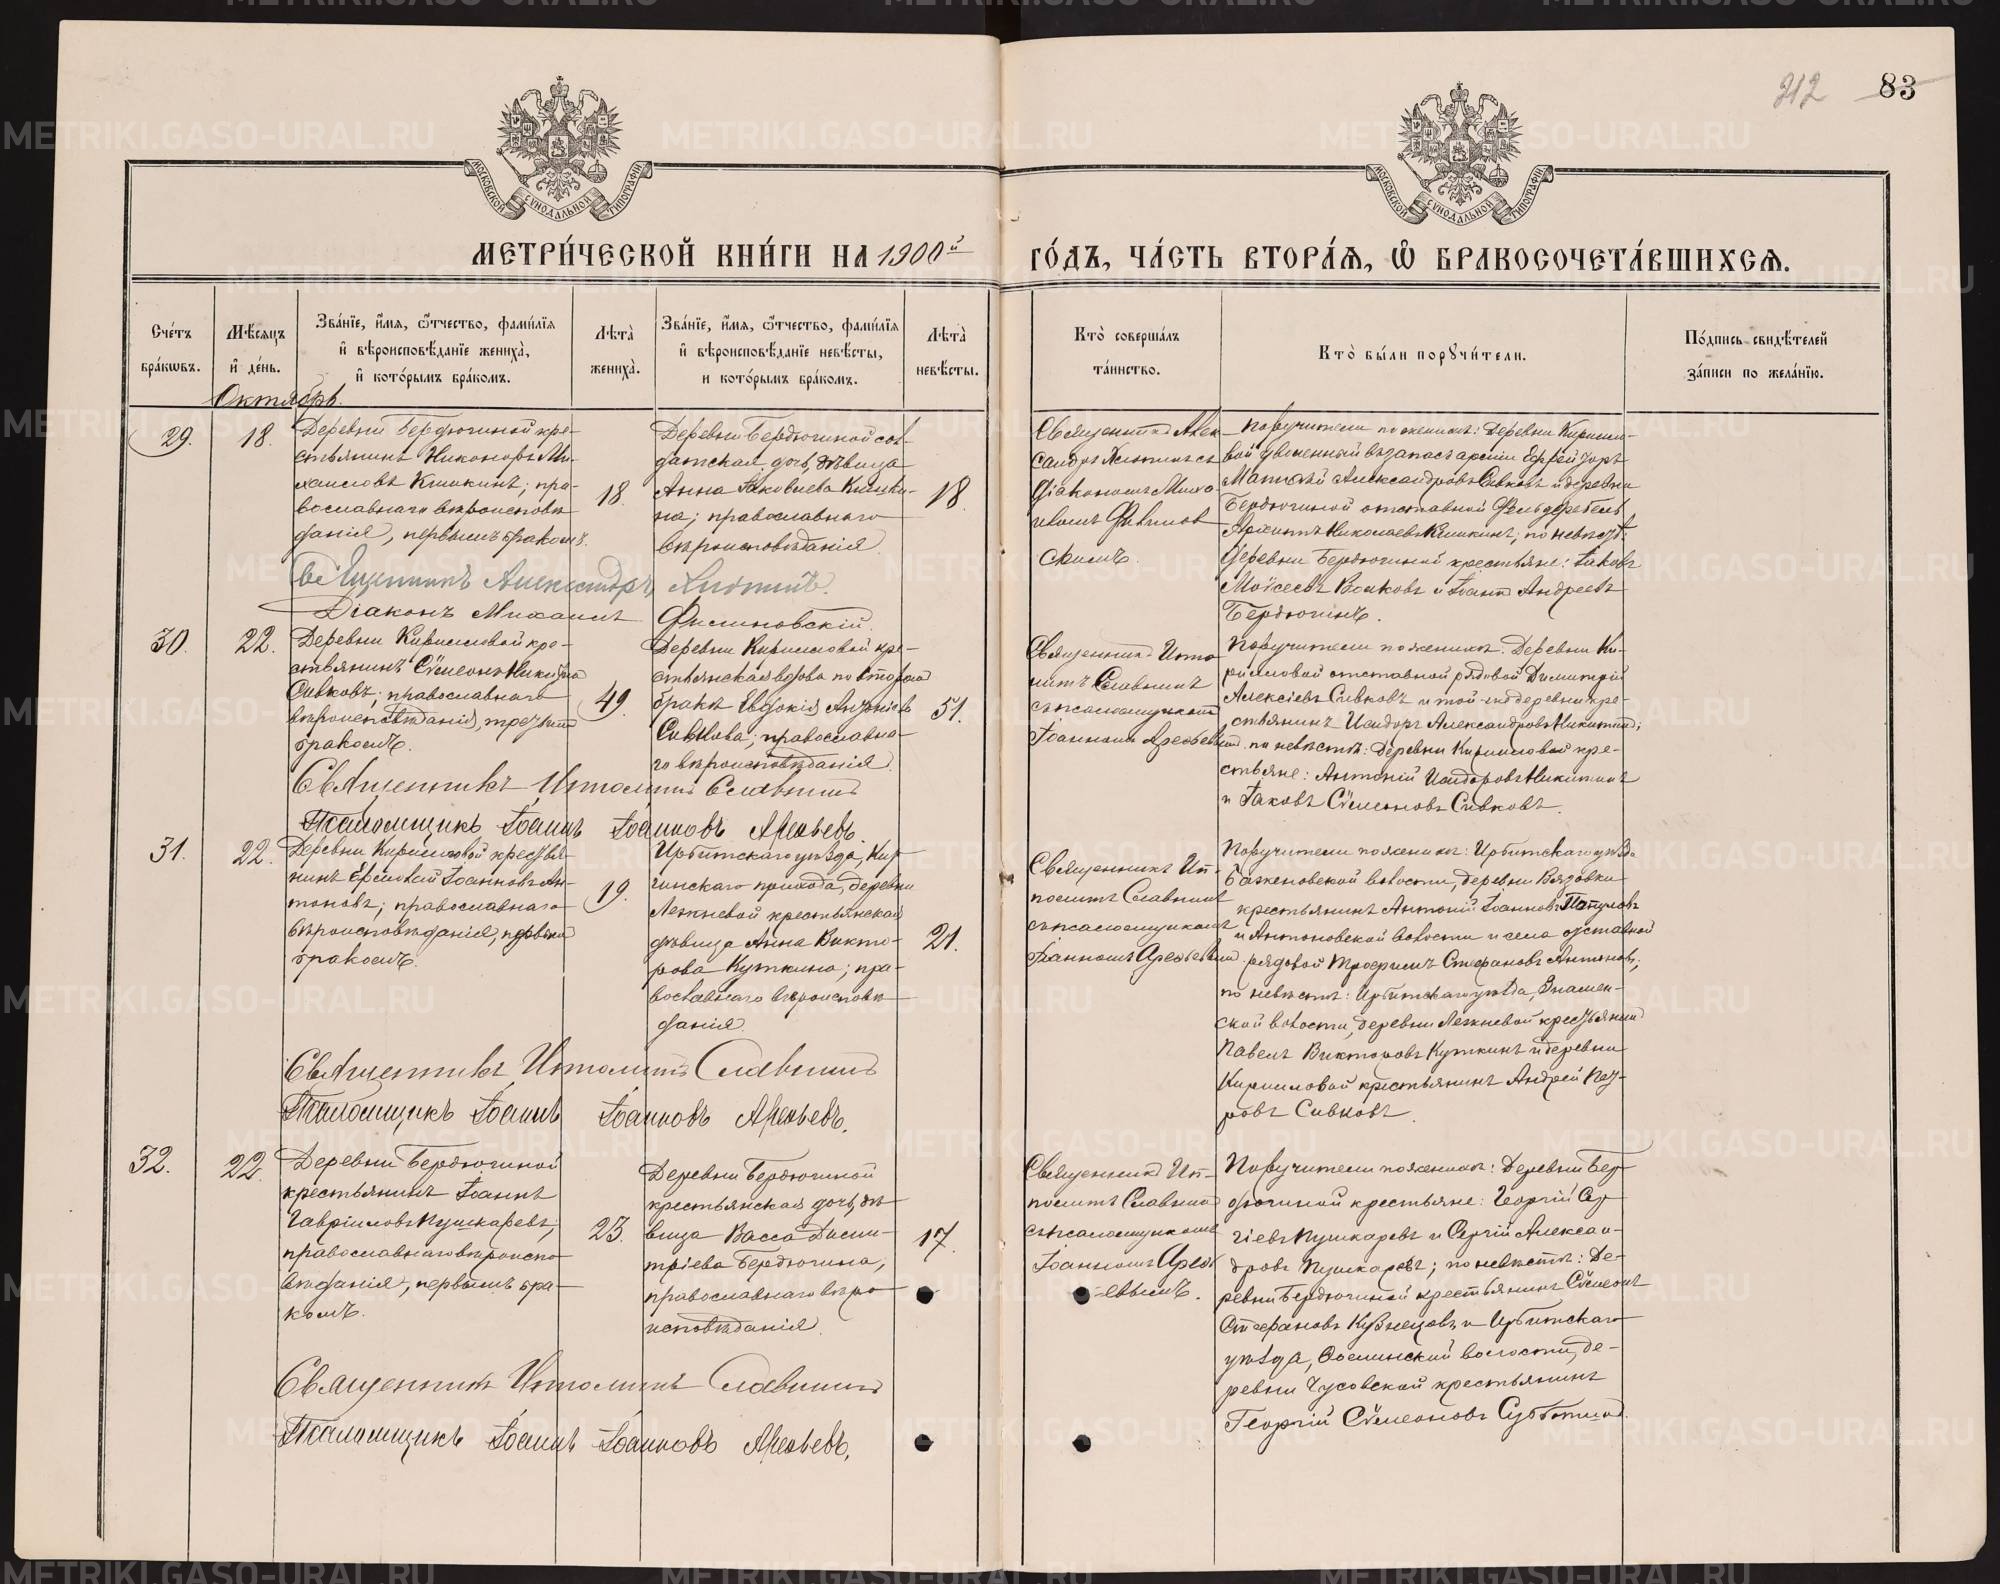 212 83
МОСКОВСКОЙ СУНОДАЛЬНОЙ ТИПОГРАФІИ
МОСКОВСКОЙ СУНОДАЛЬНОЙ ТИПОГРАФІИ
МЕТРИ́ЧЕСКОЙ КНИ́ГИ НА 1900й
ГО́ДЪ, ЧА́СТЬ ВТОРА́Я, Ѿ БРАКОСОЧЕТА́ВШИХСЯ.
Сче́тъ бра́кѡвъ.
Мѣ́сяцъ и҆ де́нь.
Зва́нїе, и҆́мя, ѻ҆́тчество, фами́лїя
и҆ вѣроисповѣ́данїе жениха̀,
и҆ кото́рымъ бра́комъ.
Лѣта̀ жениха̀.
Зва́нїе, и҆́мя, ѻ҆́тчество, фами́лїя
и҆ вѣроисповѣ́данїе невѣ́сты,
и кото́рымъ бра́комъ.
Лѣта̀ невѣ́сты.
Кто̀ соверша́лъ
та́инство.
Кто̀ бы́ли порꙋчи́тели.
По́дпись свидѣ́телей
за́писи по жела́нїю.
Октябрь.
29.
18.
Деревни Бердюгиной кре-
стьянинъ Никоноръ Ми-
хаиловъ Кишкинъ; пра-
вославнаго вѣроисповѣ
данія, первымъ бракомъ.
18.
Деревни Бердюгиной сол-
датская дочь, дѣвица
Анна Іаковлева Кишки-
на; православнаго
вѣроисповѣданія.
18.
Священникъ Алек-
сандръ
съ
діакономъ Миха-
иломъ Филинов
скимъ.
Поручители по женихѣ: Деревни Кирилло-
вой уволенный въ запасъ арміи
Александровъ Сивковъ и деревни
Бердюгиной отставной
Николаевъ Кишкинъ; по невѣстѣ:
Деревни Бердюгиной крестьяне: Іаковъ
Моѵсеевъ Волковъ и Іоаннъ Андреевъ
Бердюгинъ.
Священникъ Александръ
Діаконъ Михаилъ Филиновскій.
30.
22.
Деревни Кирилловой кре-
стьянинъ Сѵмеонъ Никитинъ
Сивковъ; православнаго
вѣроисповѣданія, третьимъ
бракомъ.
49.
Деревни Кирилловой кре-
стьянская вдова по второму
браку Евдокія Антоніева
Сивкова; православна-
го вѣроисповѣданія.
51.
Священникъ Иппо-
литъ Славнинъ
съ псаломщикомъ
Іоанномъ Арефьевымъ.
Поручители по женихѣ: Деревни Ки-
рилловой отставной рядовой Димитрій
Алексіевъ Сивковъ и той-же деревни кре-
стьянинъ Исидоръ Александровъ Никитинъ;
по невѣстѣ: Деревни Кирилловой кре-
стьяне: Антоній Исидоровъ Никитинъ
и Іаковъ Сѵмеоновъ Сивковъ.
Священникъ Ипполитъ Славнинъ
Псаломщикъ Іоаннъ Іоанновъ Арефьевъ.
31.
22.
Деревни Кирилловой крестья-
нинъ Ермолай Іоанновъ Ан-
тоновъ; православнаго
вѣроисповѣданія, первымъ
бракомъ.
19.
Ирбитскаго уѣзда, Кир-
гинскаго прихода, деревни
Лежневой крестьянская
дѣвица Анна Викто-
рова Куткина; пра-
вославнаго вѣроисповѣ
данія.
21.
Священникъ Ип-
политъ Славнинъ
съ псаломщикомъ
Іоанномъ Арефьевымъ.
Поручители по женихѣ: Ирбитскаго уѣзда
Баженовской волости, деревни Вязовки
крестьянинъ Антоній Іоанновъ
и Антоновской волости и села отставной
рядовой Трофимъ Стефановъ Антоновъ;
по невѣстѣ: Ирбитскаго уѣзда, Знамен-
ской волости, деревни Лежневой крестьянинъ
Павелъ Викторовъ Куткинъ и деревни
Кирилловой крестьянинъ Андрей Пет-
ровъ Сивковъ.
Священникъ Ипполитъ Славнинъ
Псаломщикъ Іоаннъ Іоанновъ Арефьевъ.
32.
22.
Деревни Бердюгиной
крестьянинъ Іоаннъ
Гавріиловъ Пушкаревъ;
православнаго вѣроиспо-
вѣданія, первымъ бра-
комъ.
23.
Деревни Бердюгиной
крестьянская дочь, дѣ-
вица Васса Дими-
тріева Бердюгина,
православнаго вѣро
исповѣданія.
17.
Священникъ Ип-
политъ Славнинъ
съ псаломщикомъ
Іоанномъ Арефь-
евымъ.
Поручители по женихѣ: Деревни Бер-
дюгиной крестьяне: Георгій Сер-
гіевъ Пушкаревъ и Сергій Алексан-
дровъ Пушкаревъ; по невѣстѣ: Де-
ревни Бердюгиной крестьянинъ Сѵмеонъ
Стефановъ Кузнецовъ и Ирбитскаго
уѣзда, волости, де-
ревни Чусовской крестьянинъ
Георгій Сѵмеоновъ Субботинъ.
Священникъ Ипполитъ Славнинъ
Псаломщикъ Іоаннъ Іоанновъ Арефьевъ.
METRIKI.GASO-URAL.RU